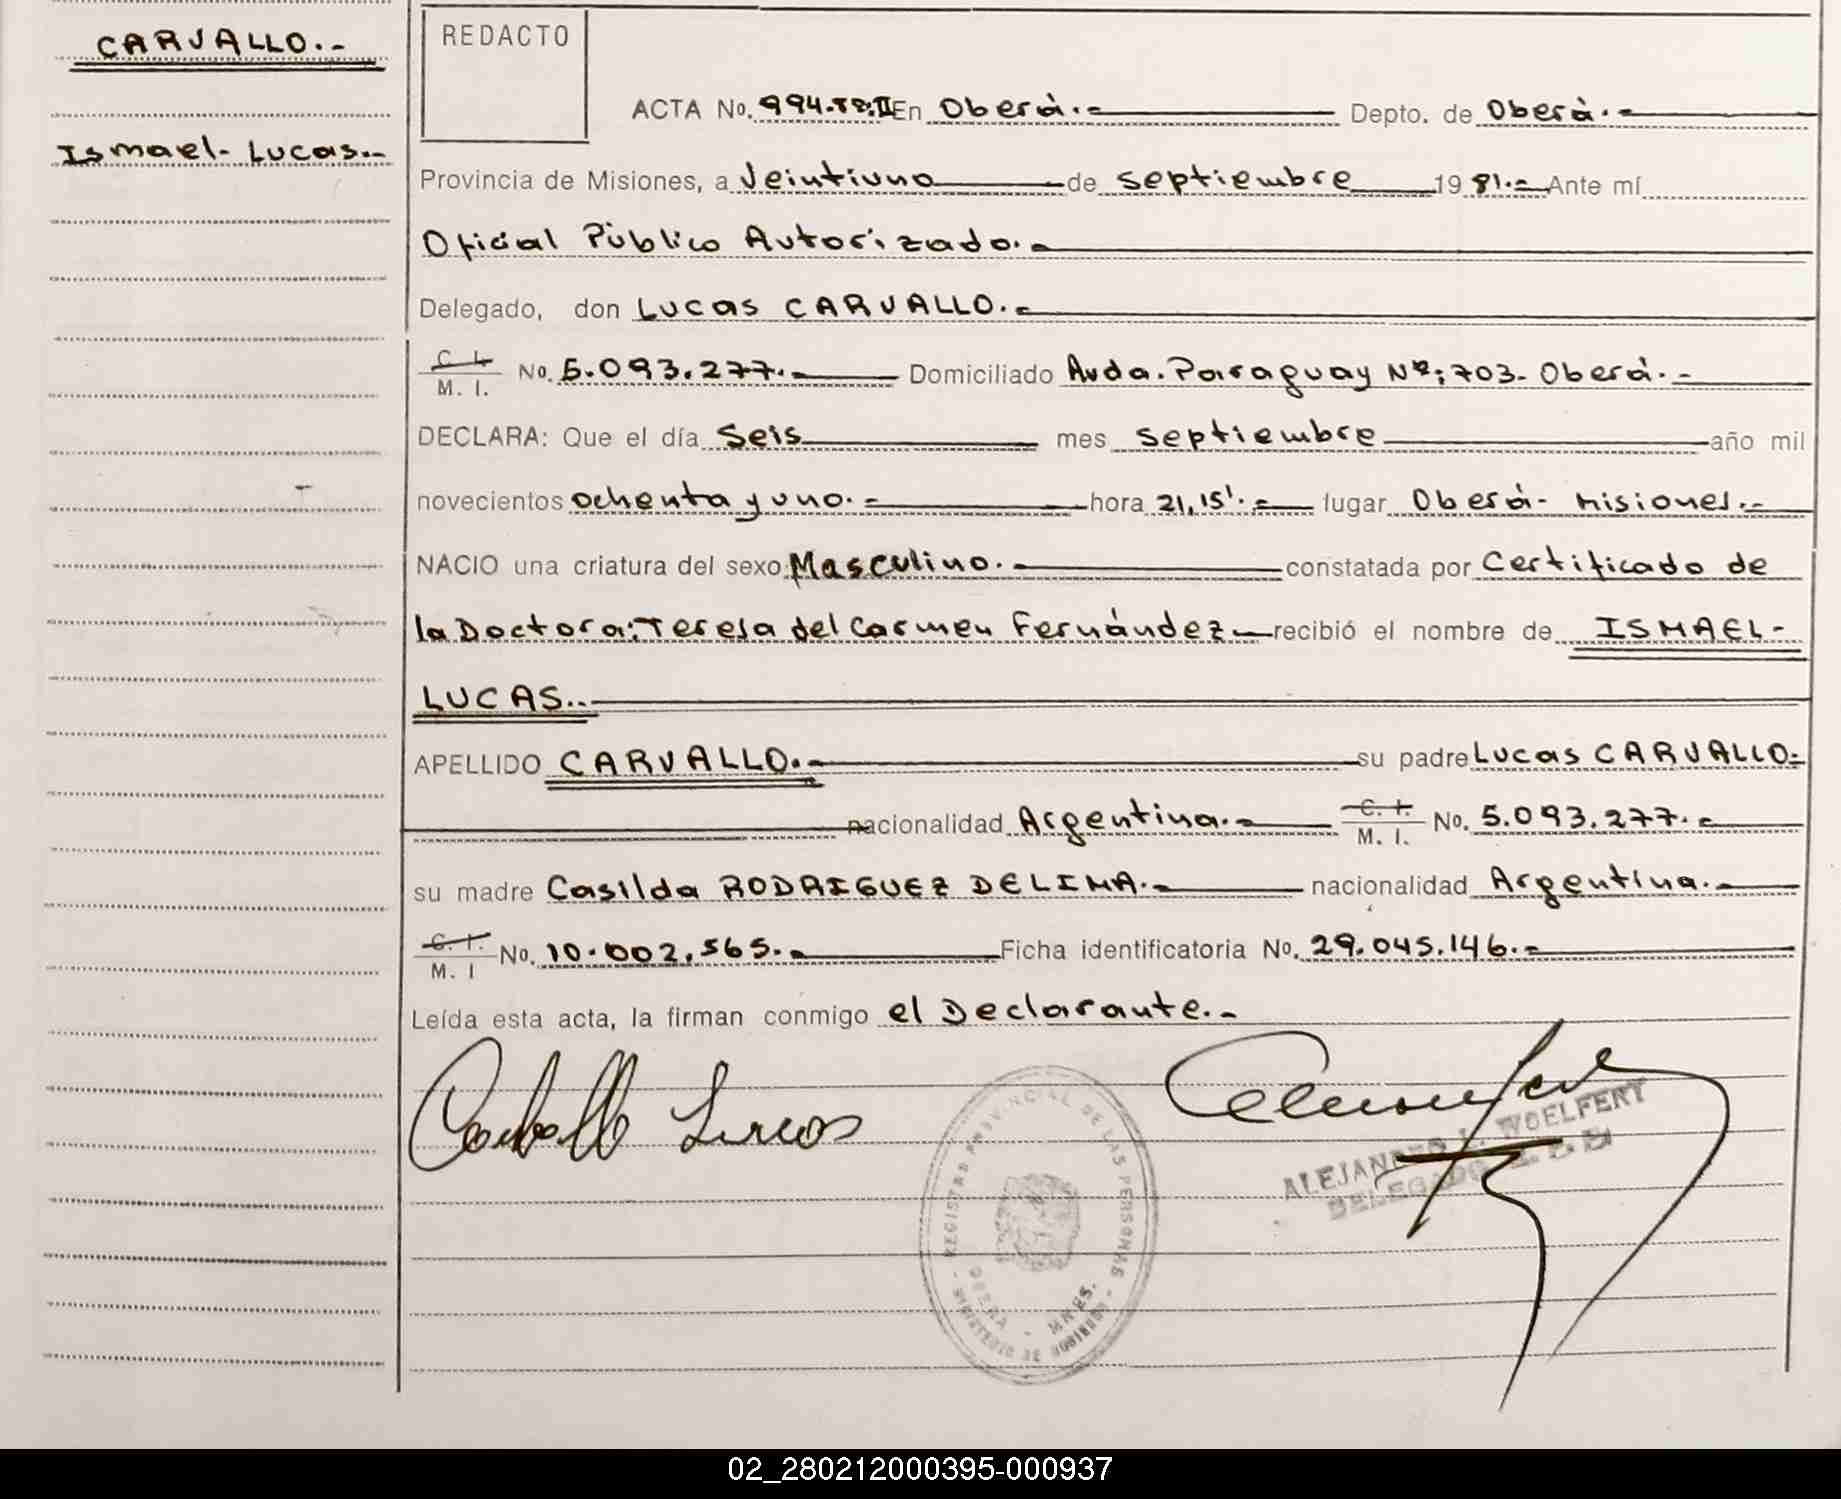 CARVALLO.-
Ismael- Lucas.-
REDACTO
ACTA No. 994.Tº:II En Oberá.- Depto. de Oberá.-
Provincia de Misiones, a Veintiuno de septiembre 19 81.- Ante mí
Oficial Público Autorizado.-
Delegado, don Lucas CARVALLO.-
C. I.
M. I. No. 5.093.277.- Domiciliado Avda. Paraguay Nº: 703- Oberá.-
DECLARA: Que el día Seis mes septiembre año mil
novecientos ochenta y uno.- hora 21,15'.- lugar Oberá- Misiones.-
NACIO una criatura del sexo Masculino.- constatada por Certificado de
la Doctora: Teresa del Carmen Fernández- recibió el nombre de ISMAEL-
LUCAS.-
APELLIDO CARVALLO.- su padre Lucas CARVALLO.-
nacionalidad Argentina.- C. I. M. I. No. 5.093.277.-
su madre Casilda RODRIGUEZ DELIMA.- nacionalidad Argentina.-
C. I. M. I No. 10.002.565.- Ficha identificatoria No. 29.045.146.-
Leída esta acta, la firman conmigo el Declarante.-
Carballo Lucas
REGISTRO PROVINCIAL DE LAS PERSONAS
OBERA - MNES.
MINISTERIO DE GOBIERNO
ALEJANDRO L. WOELFERT
DELEGADO
02_280212000395-000937